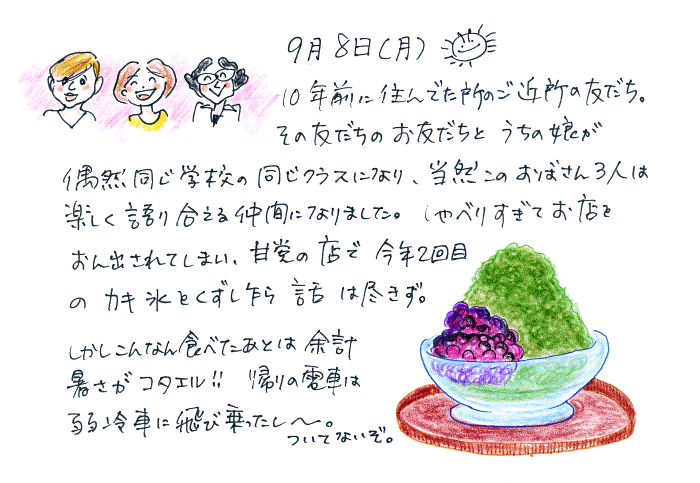 9月8日(月)
10年前に住んでた所のご近所の友だち。
その友だちのお友だちと うちの娘が
偶然同じ学校の同じクラスになり、当然このおばさん3人は
楽しく語り合える仲間になりました。 しゃべりすぎてお店を
おん出されてしまい、甘党の店で 今年2回目
の カキ氷をくずし乍ら 話 は尽きず。
しかしこんなん食べたあとは 余計
暑さがコタエル!! 帰りの電車は
弱冷車に飛び乗ったし〜。
ついてないぞ。